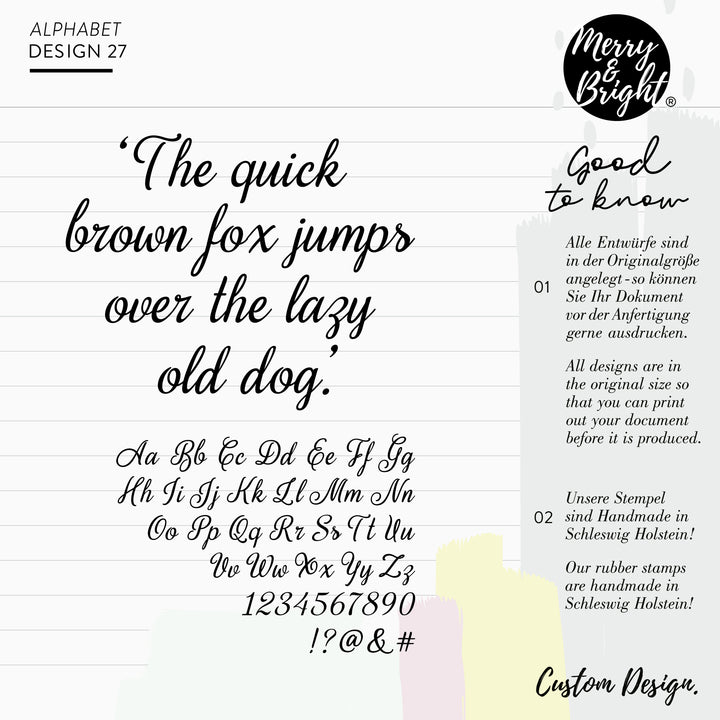 ALPHABET
DESIGN 27
Merry
&
Bright®
‘The quick
brown fox jumps
over the lazy
old dog.’
Aa Bb Cc Dd Ee Ff Gg
Hh Ii Jj Kk Ll Mm Nn
Oo Pp Qq Rr Ss Tt Uu
Vv Ww Xx Yy Zz
1234567890
!?@&#
Good
to know
01
Alle Entwürfe sind
in der Originalgröße
angelegt - so können
Sie Ihr Dokument
vor der Anfertigung
gerne ausdrucken.
All designs are in
the original size so
that you can print
out your document
before it is produced.
02
Unsere Stempel
sind Handmade in
Schleswig Holstein!
Our rubber stamps
are handmade in
Schleswig Holstein!
Custom Design.